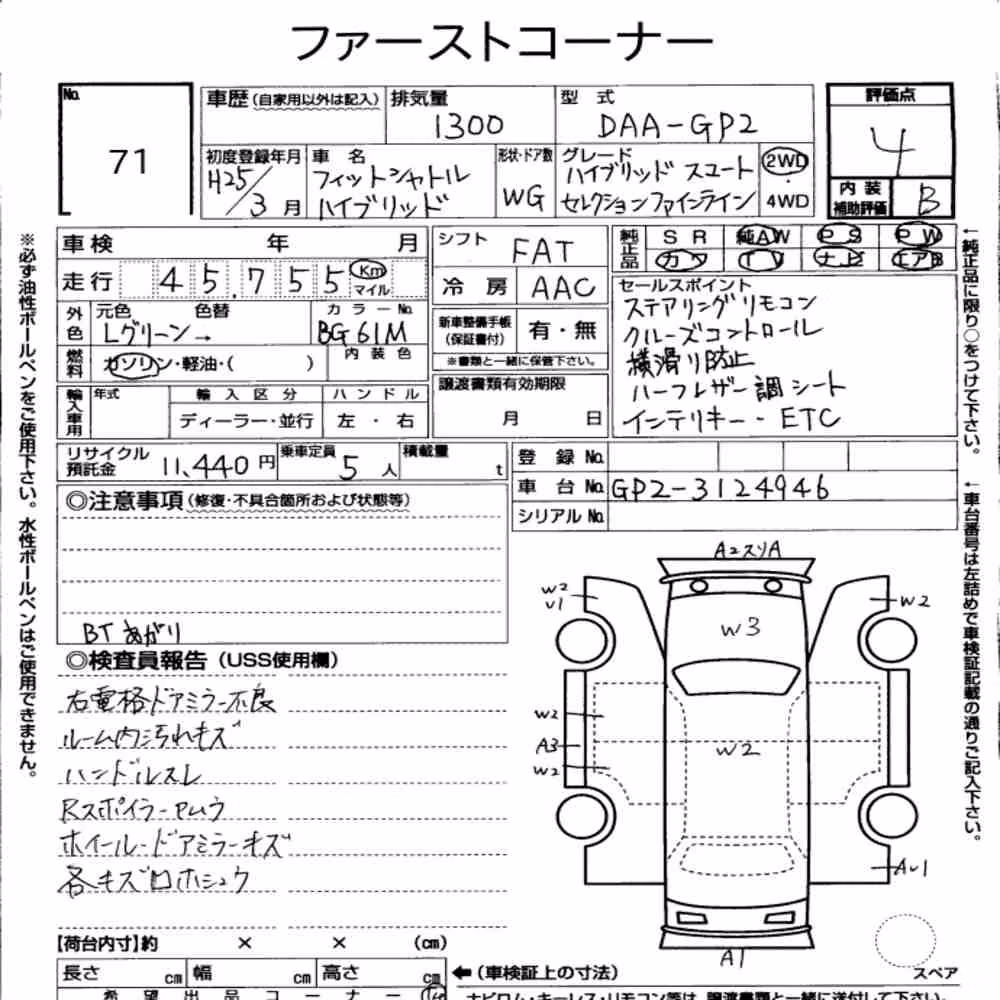 ファーストコーナー
No. 71
車歴(自家用以外は記入) 排気量 1300 型式 DAA-GP2 評価点 4
初度登録年月 H25/3月 車名 フィットシャトル ハイブリッド 形状・ドア数 WG グレード ハイブリッド スマート セレクション ファインライン 2WD・4WD 内装補助評価 B
車検 年 月 シフト FAT 純正品 SR 純AW PS PW
走行 45,755 Km マイル 冷房 AAC カワ TV ナビ エアB
外色 元色 Lグリーン→ 色替 カラーNo. BG61M 新車整備手帳(保証書付) 有・無
燃料 ガソリン・軽油・( ) 内装色 ※書類と一緒に保管下さい。
輸入車用 年式 輸入区分 ディーラー・並行 ハンドル 左・右 譲渡書類有効期限 月 日
セールスポイント
ステアリングリモコン
クルーズコントロール
横滑り防止
ハーフレザー調シート
インテリキー・ETC
リサイクル預託金 11,440円 乗車定員 5人 積載量 t
登録No.
車台No. GP2-3124946
シリアルNo.
◎注意事項(修復・不具合箇所および状態等)
BTあがり
◎検査員報告(USS使用欄)
右電格ドアミラー不良
ルーム内汚れキズ
ハンドルスレ
Rスポイラークムウ
ホイール・ドアミラーキズ
各キズロホシュウ
A2スリA
W2
U1
W2
W3
W2
A3
W2
W2
AU1
A1
スペア
【荷台内寸】約 × × (cm)
長さ cm 幅 cm 高さ cm ←(車検証上の寸法)
希望出品コーナー
※必ず油性ボールペンをご使用下さい。水性ボールペンはご使用できません。
←純正品に限り○をつけて下さい。
←車台番号は左詰めで車検証記載の通りご記入下さい。